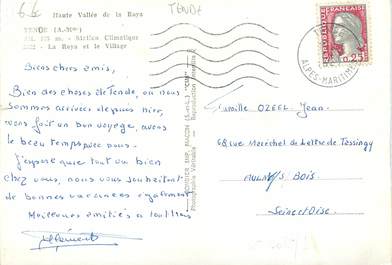 64
TENDE
Haute Vallée de la Roya
TENDE (A.-Mmes)
Alt. 815 m. - Station Climatique
La Roya et le Village
Bien chers amis,
Bien des choses de Tende, où nous
sommes arrivées depuis hier,
avons fait un bon voyage, avec
le beau temps avec nous.
J'espère que tout va bien
chez vous, nous vous souhaitons
de bonnes vacances également
Meilleures amitiés à tous
Clément
COMBIER IMP. MACON (S.-et-L.) "CIM"
Photographie Véritable - Reproduction interdite
REPUBLIQUE FRANCAISE
0,25
ALPES-MARITIMES
Famille OZEEL Jean.
68, rue Maréchal de Lattre de Tassigny
AULNAY S/ BOIS
Seine et Oise.